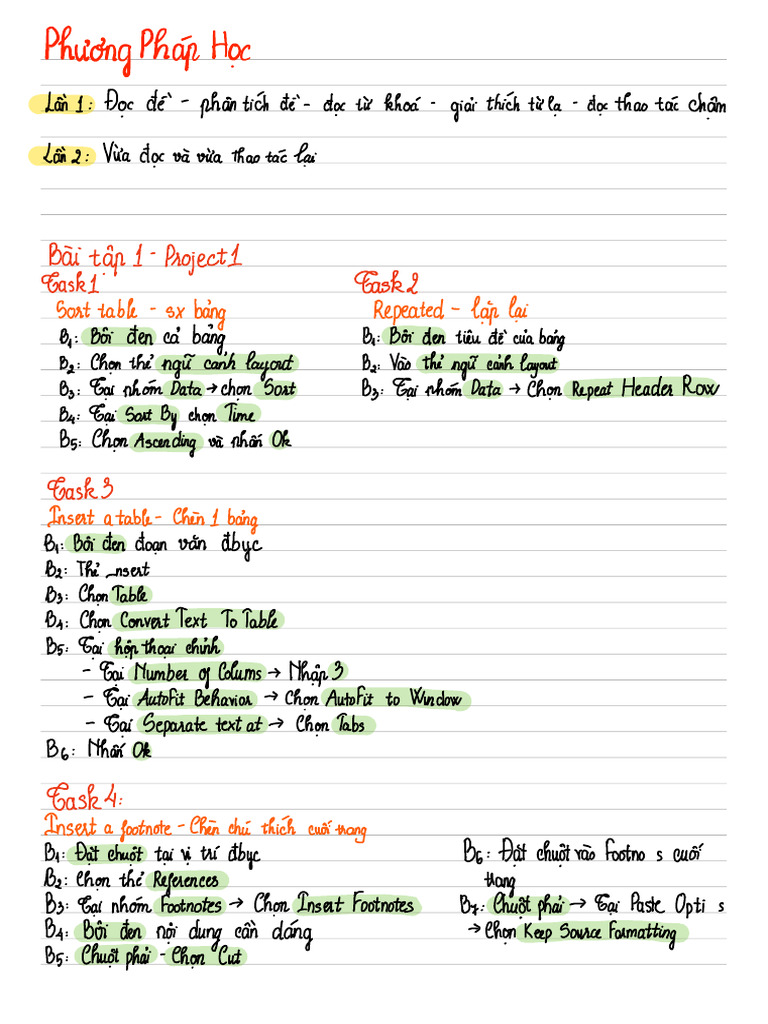 Phương Pháp Học
Lần 1: Đọc đề - phân tích đề - đọc từ khoá - giải thích từ lạ - đọc thao tác chậm
Lần 2: Vừa đọc và vừa thao tác lại
Bài tập 1 - Project 1
Task 1
Sort table - sx bảng
B1: Bôi đen cả bảng
B2: Chọn thẻ ngữ cảnh layout
B3: Tại nhóm Data → chọn Sort
B4: Tại Sort By chọn Time
B5: Chọn Ascending và nhấn Ok
Task 2
Repeated - lặp lại
B1: Bôi đen tiêu đề của bảng
B2: Vào thẻ ngữ cảnh layout
B3: Tại nhóm Data → Chọn Repeat Header Row
Task 3
Insert a table - Chèn 1 bảng
B1: Bôi đen đoạn văn đbyc
B2: Thẻ insert
B3: Chọn Table
B4: Chọn Convert Text To Table
B5: Tại hộp thoại chỉnh
- Tại Number of Colums → Nhập 3
- Tại AutoFit Behavior → Chọn AutoFit to Window
- Tại Separate text at → Chọn Tabs
B6: Nhấn Ok
Task 4:
Insert a footnote - Chèn chú thích cuối trang
B1: Đặt chuột tại vị trí đbyc
B2: Chọn thẻ References
B3: Tại nhóm Footnotes → Chọn Insert Footnotes
B4: Bôi đen nội dung cần dáng
B5: Chuột phải - Chọn Cut
B6: Đặt chuột vào Footno s cuối
trang
B7: Chuột phải → Tại Paste Opti s
→ Chọn Keep Source Formatting